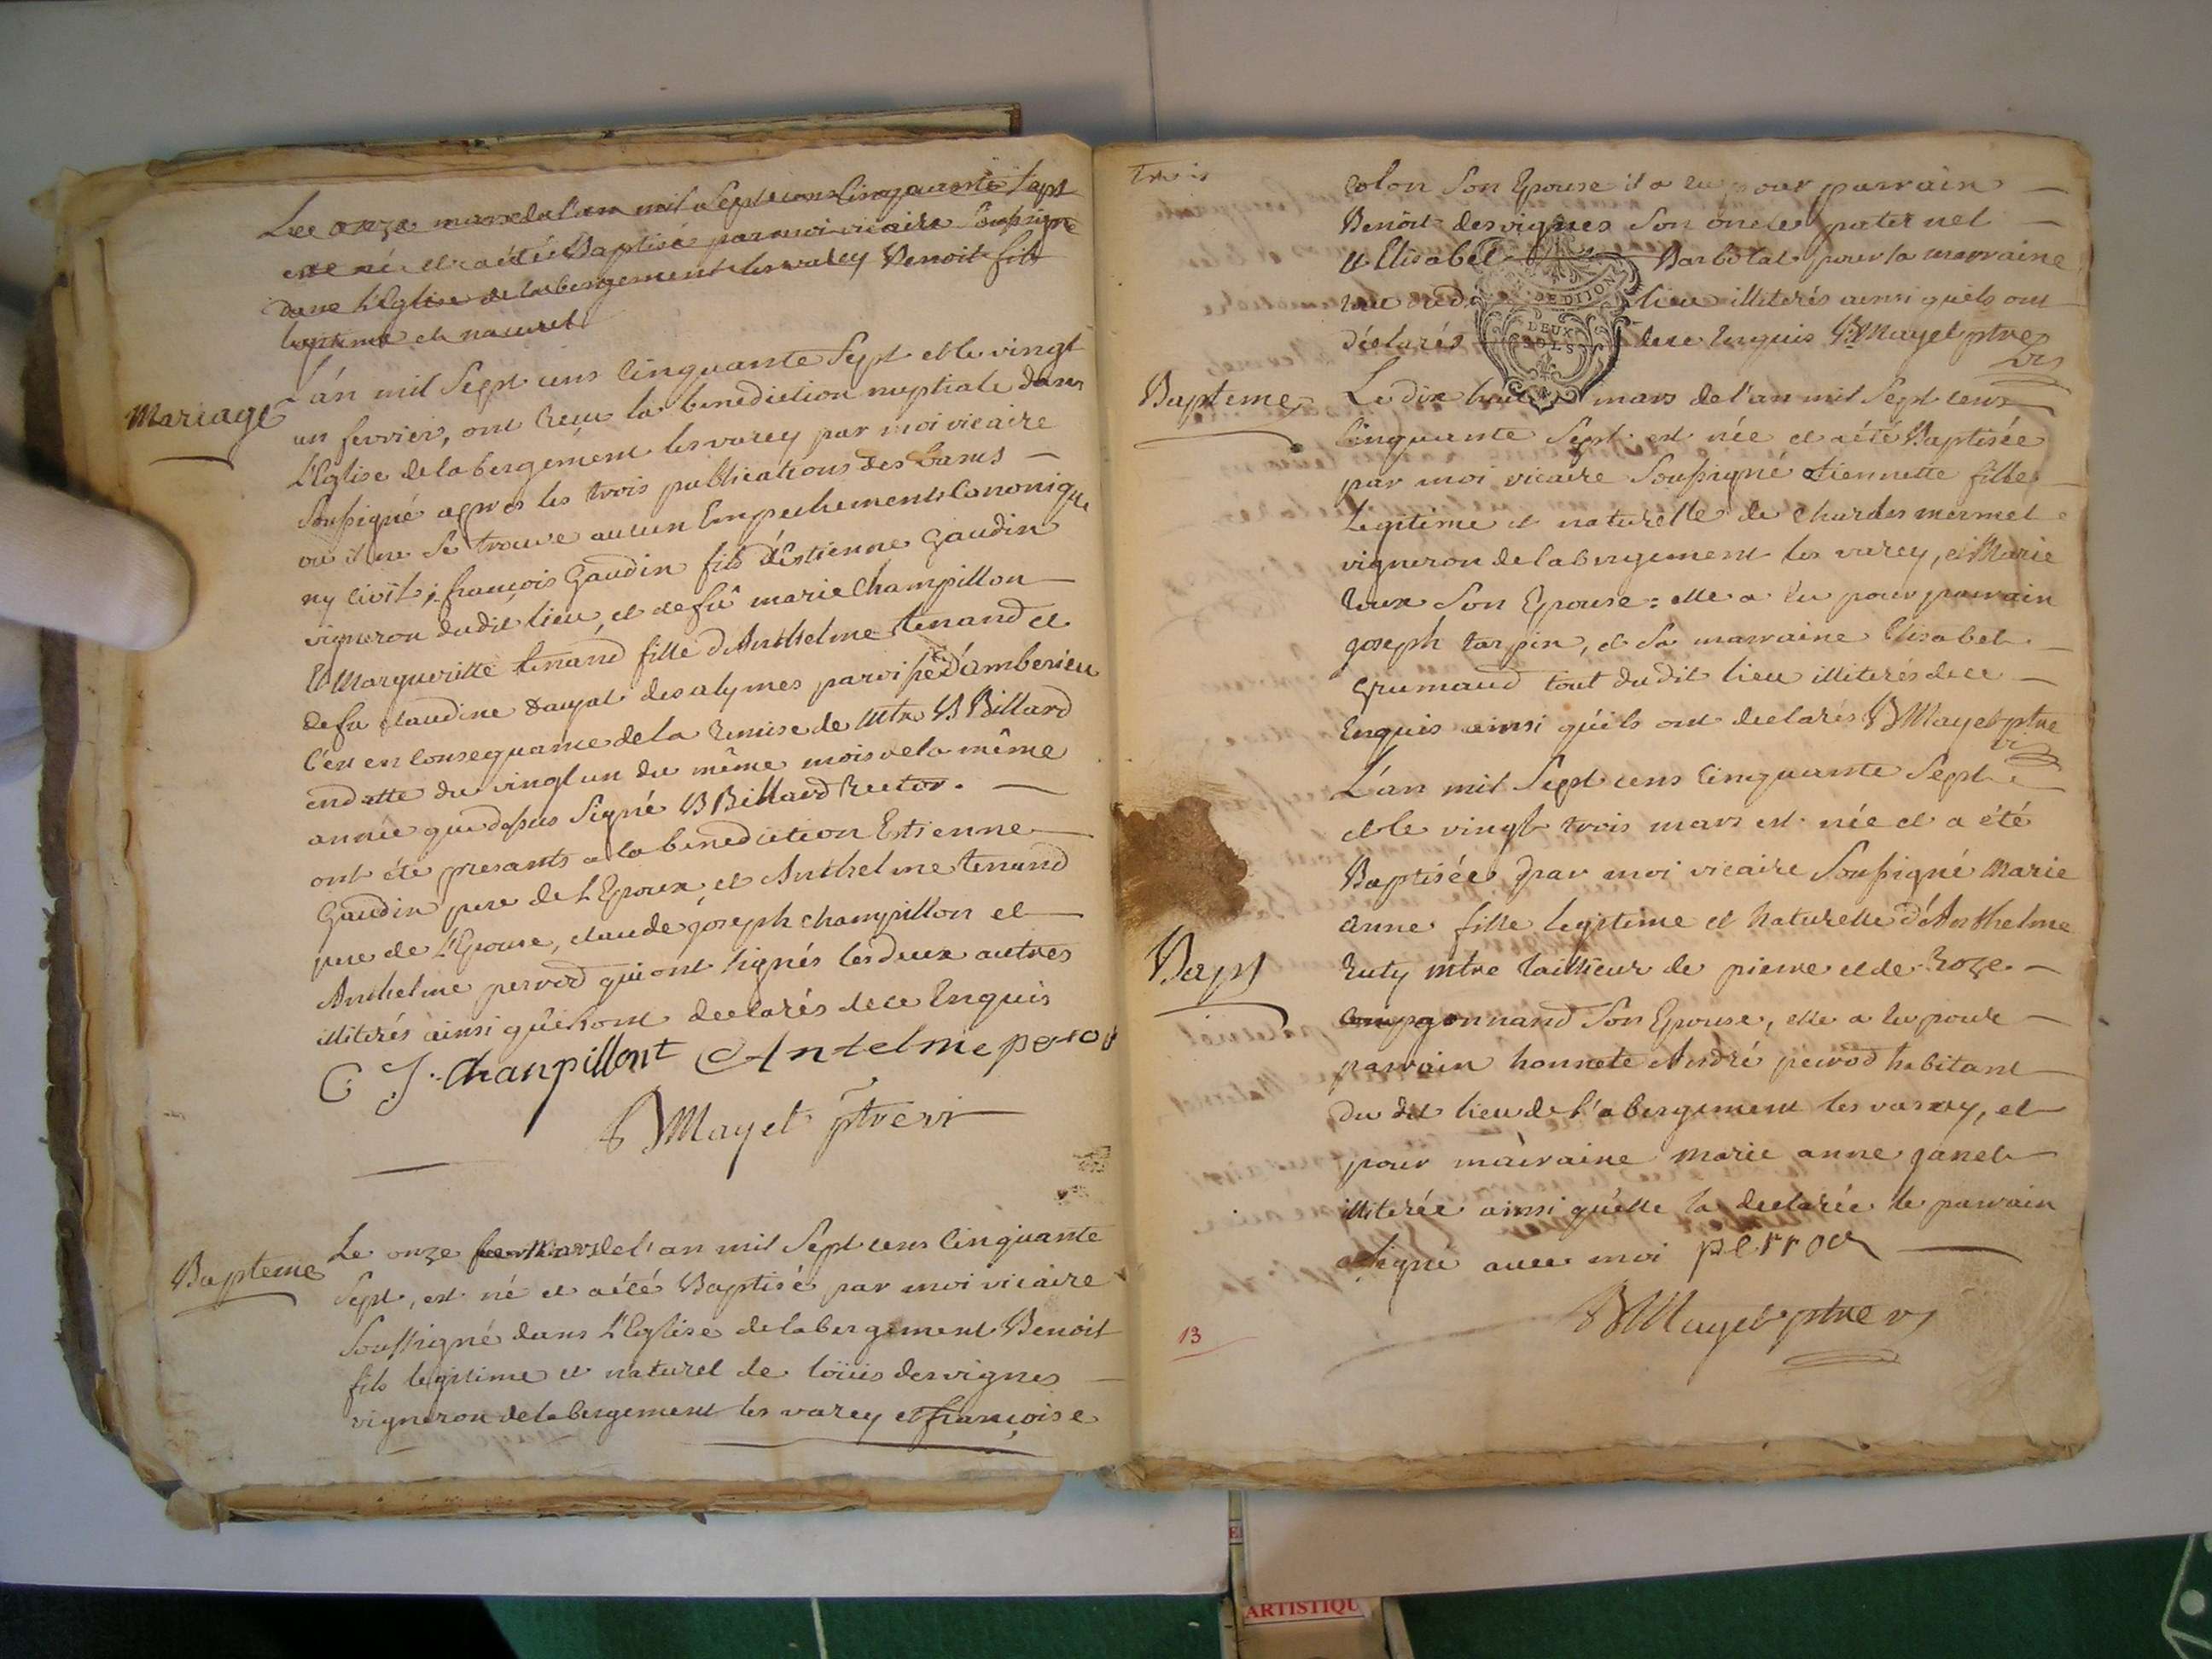 Le onze mars de l'an mil sept cens cinquante sept
est né et a été Baptisé par moi vicaire soussigné
dans L'Eglise de labergement les varey Benoit fils
legitime et naturel
Mariage
L'án mil sept cens cinquante sept et le vingt
un fevrier, ont reçu la benediction nuptiale dans
L'Eglise de labergement les varey par moi vicaire
soussigné apres les trois publications des bans
ou il ne se trouve aucun Empechements Canonique
ny civil ; françois Gaudin fils d'Estienne Gaudin
vigneron dudit lieu, et defû marie Champillon
Et Margueritte tenand fille d'Anthelme tenand et
defu claudine des alymes paroisse d'amberieu
c'en en consequance de la remise de Mtre B Billard
en datte du vingt un du même mois de la même
année que dessus signé B Billard Rector.
ont été presants a la benediction Estienne
Gaudin pere de L'Epoux, et Anthelme tenand
pere de L'Epouse, claude joseph champillon et
Anthelme perrod qui ont signés les deux autres
illiterés ainsi quils ont declarés de ce Enquis
C J. Chanpillont Antelme perod
B Mayet ptre vi
Bapteme
Le onze mars de l'an mil sept cens cinquante
sept, est né et a été Baptisé par moi vicaire
soussigné dans L'Eglise de labergement Benoit
fils legitime et naturel de loüis desvignes
vigneron de labergement les varey et françoise
Trois
colon son Epouse il a eu pour parrain
Benoit desvignes son oncle paternel
et Elisabet Barbolat pour sa marraine
DE DIJON
DEUX
SOLS
lieu illiterés ainsi quels ont
déclarés de ce Enquis B Mayet ptre
vi
Bapteme
Le dix huit mars de l'an mil sept cens
cinquante sept est née et a été Baptisée
par moi vicaire soussigné Etiennette fille
Legitime et naturelle de Charles mermet
vigneron de labergement les varey, et Marie
roux son Epouse : elle a eu pour parrain
joseph tarpin, et sa marraine Elisabet
grumaud tout du dit lieu illiterés de ce
Enquis ainsi qu'ils ont declarés B Mayet ptre
vi
L'án mil sept cens cinquante sept
et le vingt trois mars est née et a été
Baptisée par moi vicaire soussigné Marie
Bapt
anne fille legitime et naturelle d'Anthelme
ruty mtre tailleur de pierre et de roze
compagonnand son Epouse, elle a eu pour
parrain honnete André perrod habitant
du dit lieu de l'abergement les varey, et
pour marraine marie anne janet
illiterée ainsi qu'elle la declarée le parrain
a signé avec moi perrod
B Mayet ptre v
13
ARTISTIQU